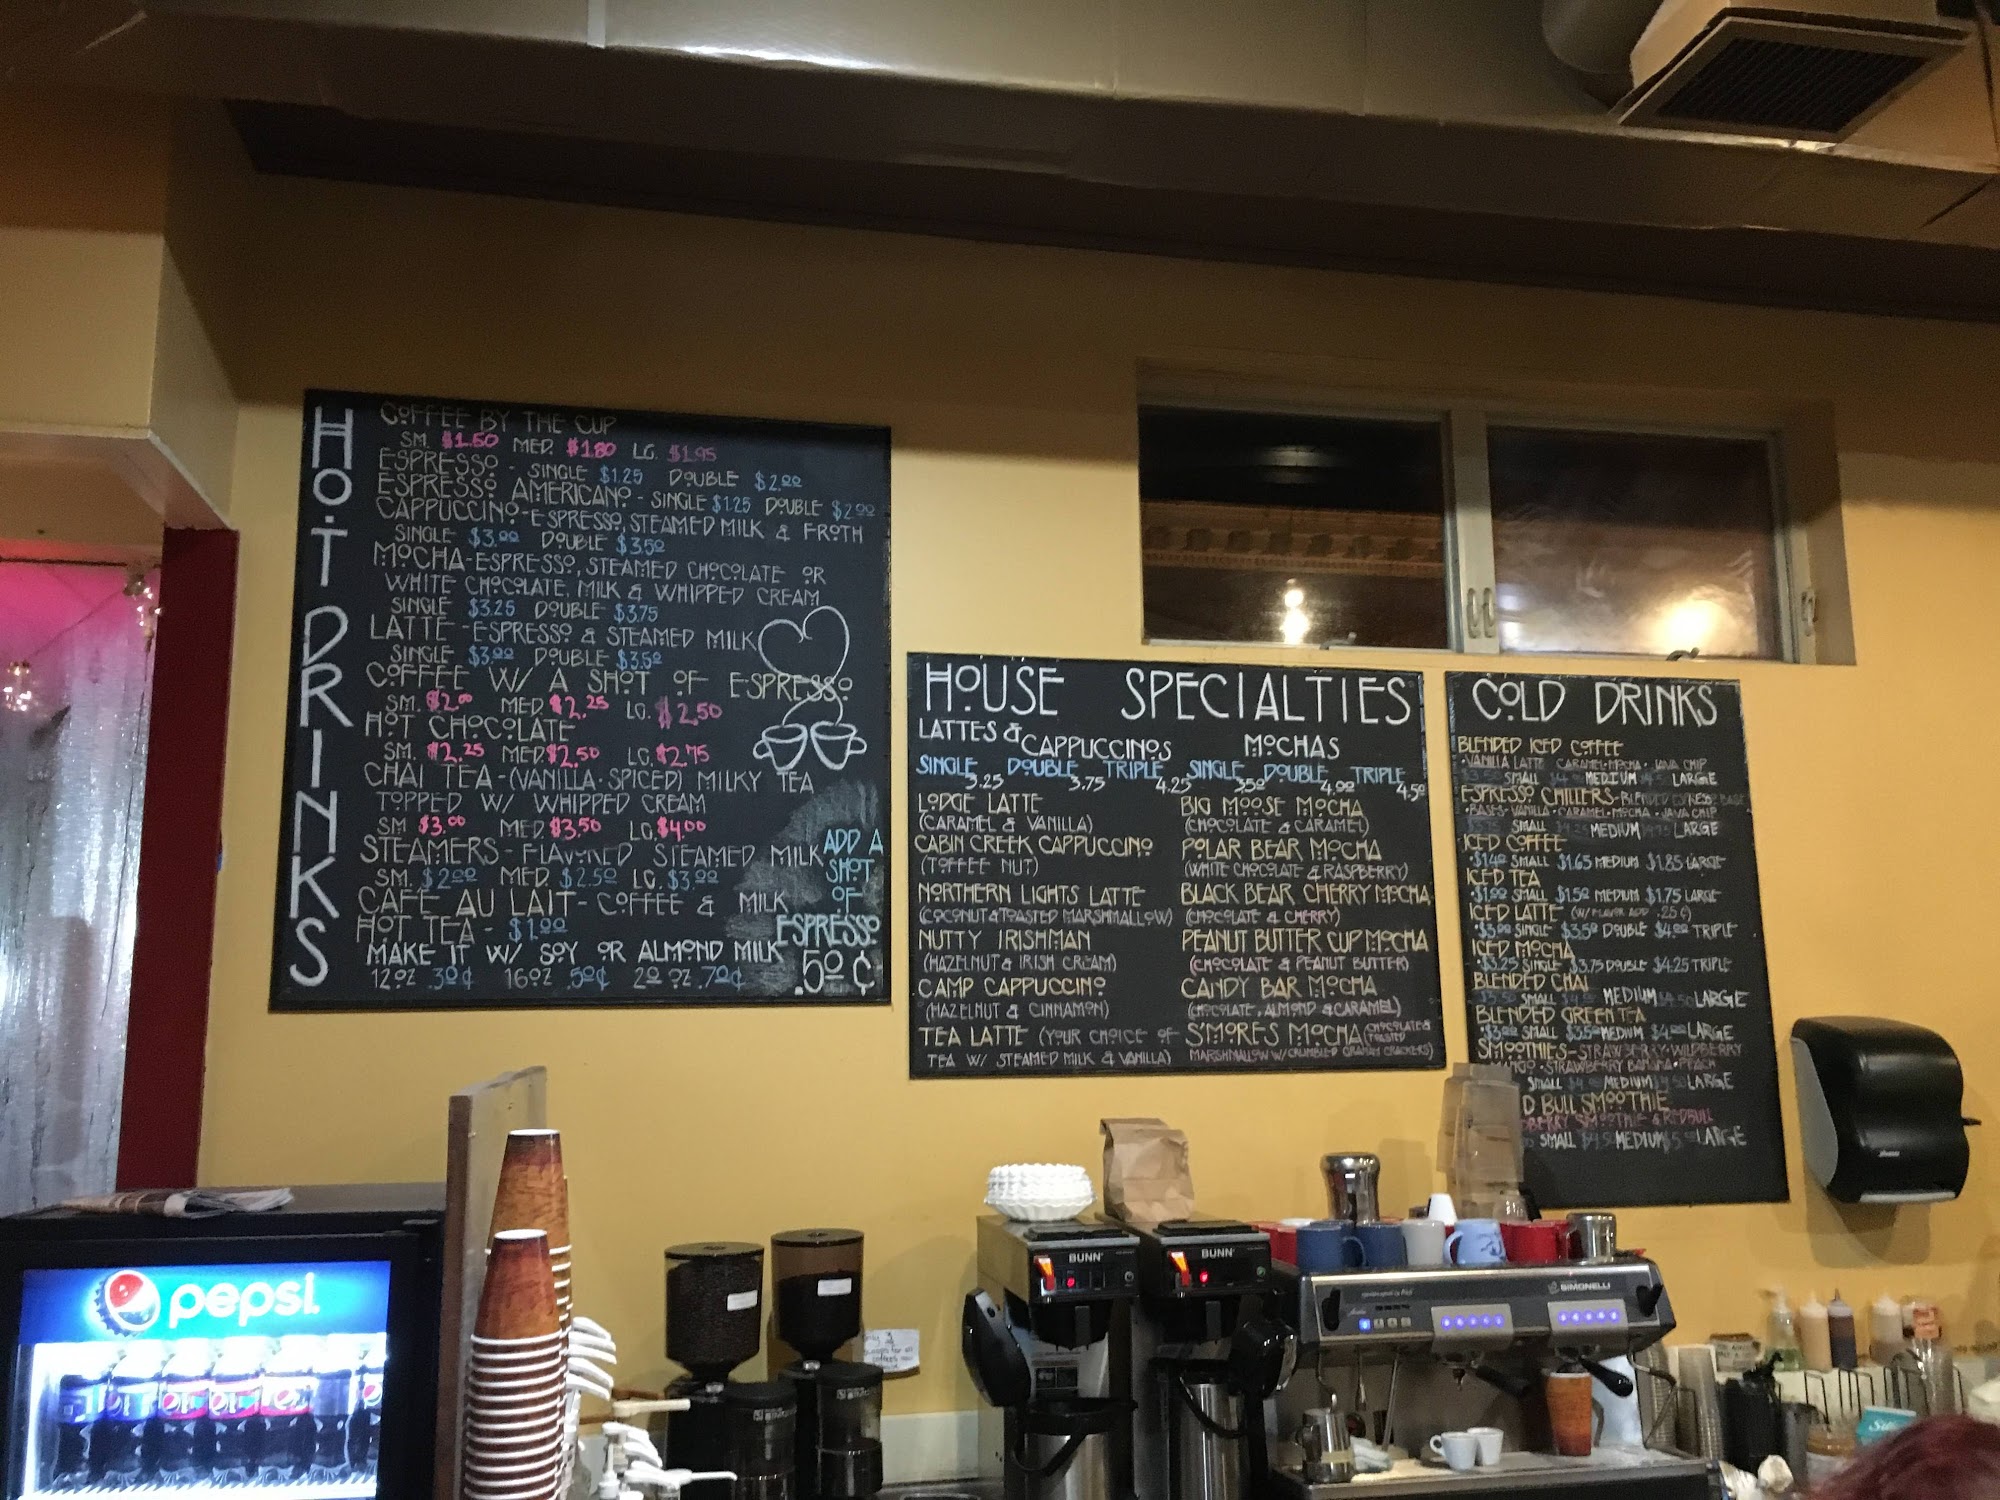 HOT DRINKS
COFFEE BY THE CUP
SM. $1.60 MED. $1.80 LG. $1.95
ESPRESSO - SINGLE $1.25 DOUBLE $2.00
ESPRESSO AMERICANO - SINGLE $1.25 DOUBLE $2.00
CAPPUCCINO - ESPRESSO, STEAMED MILK & FROTH
SINGLE $3.00 DOUBLE $3.50
MOCHA - ESPRESSO, STEAMED CHOCOLATE OR
WHITE CHOCOLATE, MILK & WHIPPED CREAM
SINGLE $3.25 DOUBLE $3.75
LATTE - ESPRESSO & STEAMED MILK
SINGLE $3.00 DOUBLE $3.50
COFFEE W/ A SHOT OF ESPRESSO
SM. $2.00 MED. $2.25 LG. $2.50
HOT CHOCOLATE
SM. $2.25 MED. $2.50 LG. $2.75
CHAI TEA - (VANILLA · SPICED) MILKY TEA
TOPPED W/ WHIPPED CREAM
SM $3.00 MED. $3.50 LG. $4.00
STEAMERS - FLAVORED STEAMED MILK
SM. $2.00 MED. $2.50 LG. $3.00
CAFÉ AU LAIT - COFFEE & MILK
HOT TEA - $1.00
MAKE IT W/ SOY OR ALMOND MILK
12OZ .30¢ 16OZ .50¢ 20 OZ .70¢
ADD A
SHOT
OF
ESPRESSO
.50¢
HOUSE SPECIALTIES
LATTES & CAPPUCCINOS
SINGLE 3.25 DOUBLE 3.75 TRIPLE 4.25
LODGE LATTE
(CARAMEL & VANILLA)
CABIN CREEK CAPPUCCINO
(TOFFEE NUT)
NORTHERN LIGHTS LATTE
(COCONUT & TOASTED MARSHMALLOW)
NUTTY IRISHMAN
(HAZELNUT & IRISH CREAM)
CAMP CAPPUCCINO
(HAZELNUT & CINNAMON)
TEA LATTE (YOUR CHOICE OF
TEA W/ STEAMED MILK & VANILLA)
MOCHAS
SINGLE 3.50 DOUBLE 4.00 TRIPLE 4.50
BIG MOOSE MOCHA
(CHOCOLATE & CARAMEL)
POLAR BEAR MOCHA
(WHITE CHOCOLATE & RASPBERRY)
BLACK BEAR CHERRY MOCHA
(CHOCOLATE & CHERRY)
PEANUT BUTTER CUP MOCHA
(CHOCOLATE & PEANUT BUTTER)
CANDY BAR MOCHA
(CHOCOLATE, ALMOND & CARAMEL)
S'MORES MOCHA (CHOCOLATE & TOASTED
MARSHMALLOW W/ CRUMBLED GRAHAM CRACKERS)
COLD DRINKS
BLENDED ICED COFFEE
· VANILLA LATTE CARAMEL · MOCHA · JAVA CHIP
SMALL MEDIUM LARGE
ESPRESSO CHILLERS - BLENDED ESPRESSO BASE
· BASES - VANILLA · CARAMEL · MOCHA · JAVA CHIP
SMALL $4.25 MEDIUM LARGE
ICED COFFEE
· $1.40 SMALL $1.65 MEDIUM $1.85 LARGE
ICED TEA
· $1.00 SMALL $1.50 MEDIUM $1.75 LARGE
ICED LATTE (W/ FLAVOR ADD .25¢)
· $3.00 SINGLE $3.50 DOUBLE $4.00 TRIPLE
ICED MOCHA
· $3.25 SINGLE $3.75 DOUBLE $4.25 TRIPLE
BLENDED CHAI
$3.50 SMALL MEDIUM $4.50 LARGE
BLENDED GREEN TEA
· $3.00 SMALL $3.50 MEDIUM $4.00 LARGE
SMOOTHIES - STRAWBERRY · WILDBERRY
MANGO · STRAWBERRY BANANA · PEACH
SMALL MEDIUM LARGE
D BULL SMOOTHIE
SMOOTHIE & REDBULL
SMALL MEDIUM LARGE
pepsi.
BUNN
BUNN
SIMONELLI